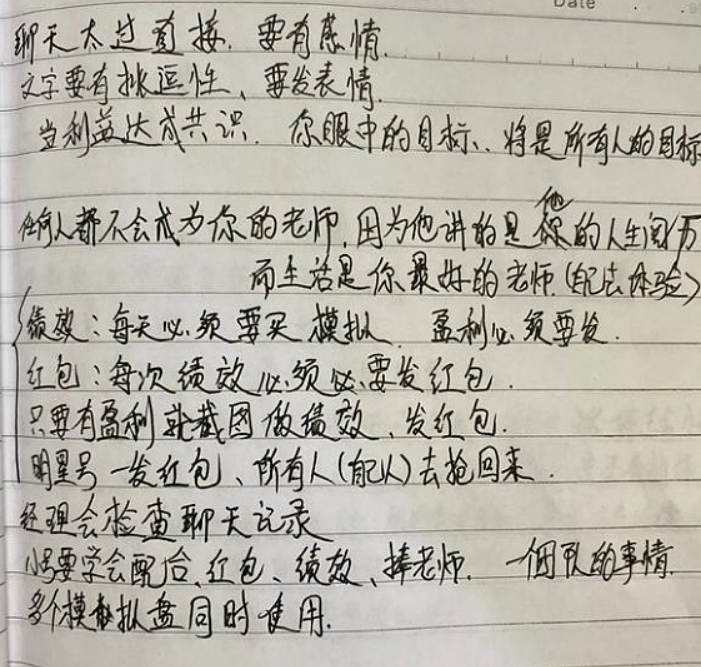 Date
聊天太过直接. 要有感情.
文字要有挑逗性、要发表情.
当利益达成共识. 你眼中的目标.. 将是所有人的目标
任何人都不会成为你的老师. 因为他讲的是他的人生阅历
而生活是你最好的老师.(自己去体验)
绩效:每天必须要买模拟. 盈利必须要发.
红包:每次绩效必须必要发红包.
只要有盈利就截图做绩效、发红包.
明星号一发红包、所有人(自己人)去抢回来.
经理会检查聊天记录
小号要学会配合、红包、绩效、捧老师. 一个团队的事情.
多个模拟盘同时使用.